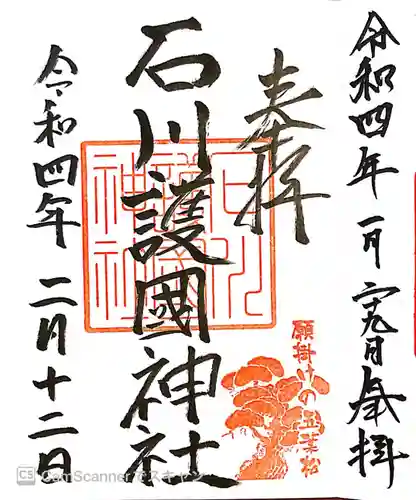 令和四年 一月 二十九日 奉拝
奉拝
石川護國神社
令和四年 二月十二日
願掛けの三葉松
CamScannerでスキャン